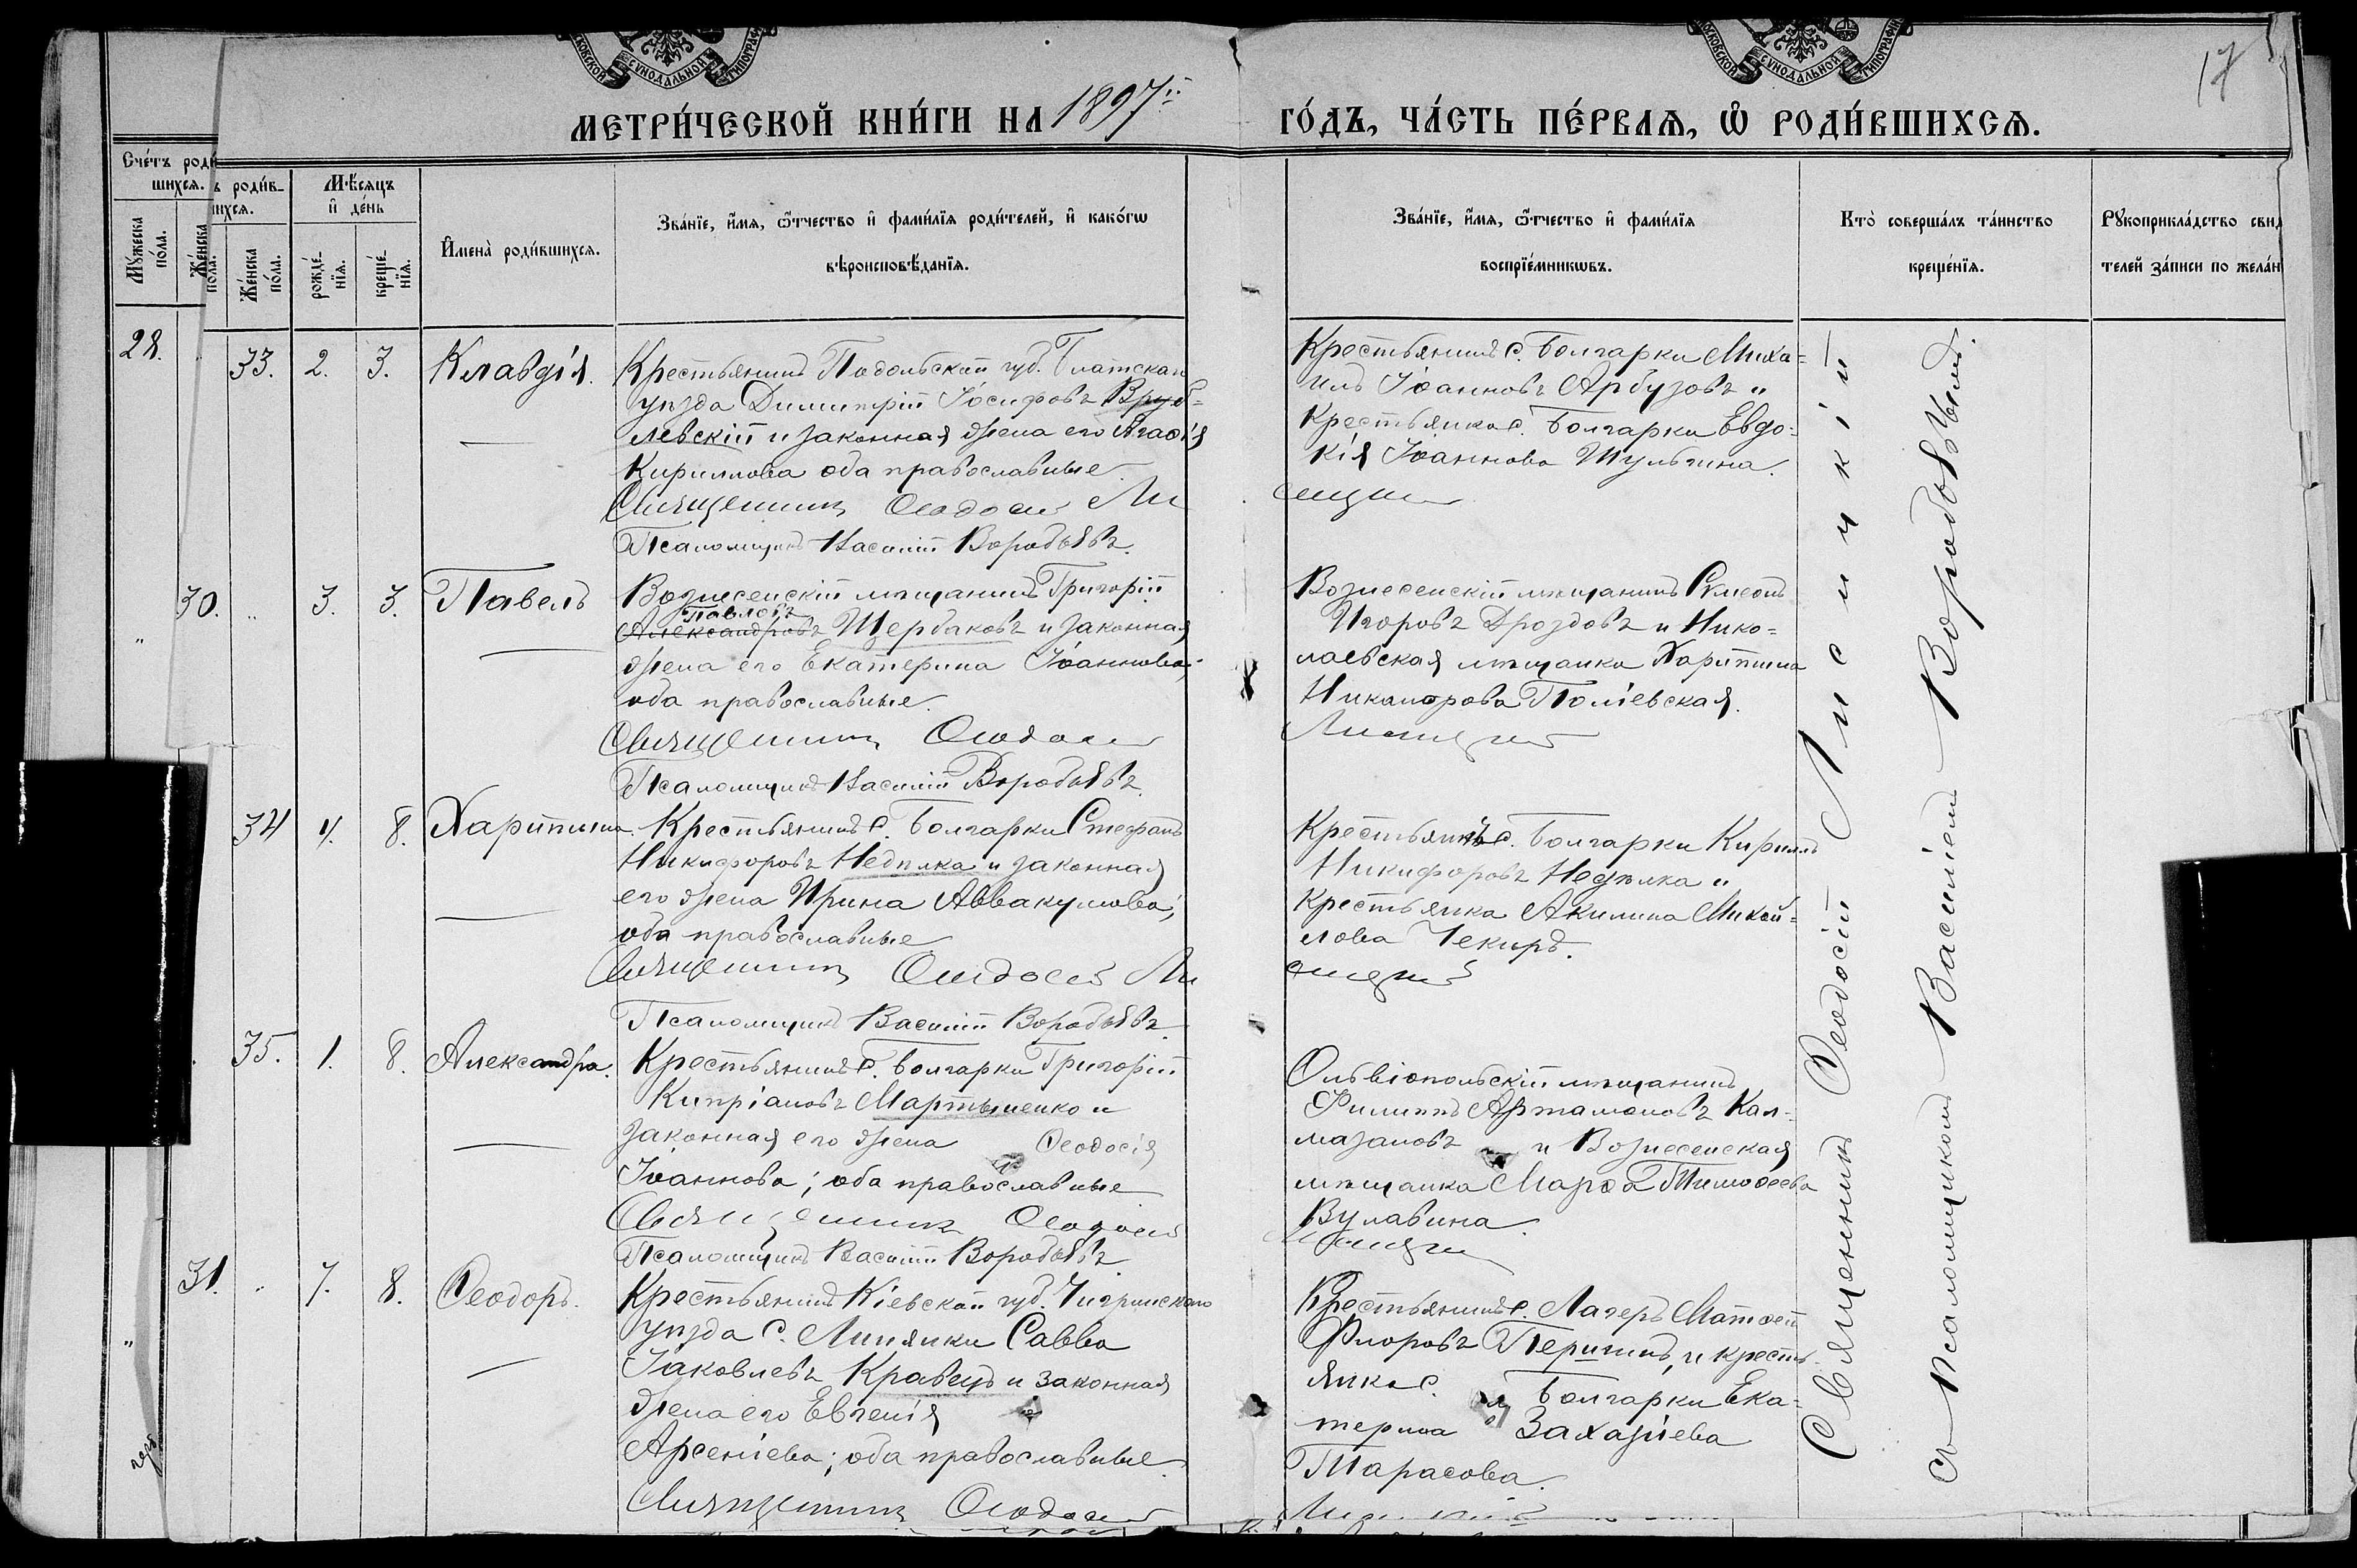 МОСКОВСКОЙ СѴНОДАЛЬНОЙ ТИПОГРАФІИ
МОСКОВСКОЙ СѴНОДАЛЬНОЙ ТИПОГРАФІИ
17
МЕТРИ́ЧЕСКОЙ КНИ́ГИ НА 1897й ГО́ДЪ, ЧА́СТЬ ПЕ́РВАѦ, Ѡ РОДИ́ВШИХСѦ.
Сче́тъ роди́
шихсѧ.
ъ роди́в-
шихсѧ.
Мꙋ́жеска по́ла.
Же́нска по́ла.
Же́нска по́ла.
Мѣ́сяцъ и҆ де́нь
рожде́-нїѧ.
креще́-нїѧ.
И҆мена̀ роди́вшихсѧ.
Зва́нїе, и҆́мѧ, ѻ҆́тчество и҆ фами́лїѧ роди́телей, и҆ како́гѡ
вѣроисповѣ́данїѧ.
Зва́нїе, и҆́мѧ, ѻ҆́тчество и҆ фами́лїѧ
воспрїе́мникѡвъ.
Кто̀ соверша́лъ та́инство
креще́нїѧ.
Рꙋкоприкла́дство свид
телей за́писи по жела́н
28.
33. 2. 3. Клавдія.
Крестьянинъ Подольской губ. Балтскаго
уѣзда Димитрій Іосифовъ Вруб=
левскій и законная жена его Агаѳія
Кириллова оба православные.
Священникъ Ѳеодосій Ли
Псаломщикъ Василій Воробьевъ.
Крестьянинъ с. Болгарки Миха=
илъ Іоанновъ Арбузовъ и
Крестьянка с. Болгарки Евдо=
кія Іоаннова Шульгина.
сицкій
30. " 3. 3. Павелъ
Вознесенскій мѣщанинъ Григорій
Павловъ
Александровъ Щербаковъ и законная
жена его Екатерина Іоаннова;
оба православные.
Священникъ Ѳеодосій
Псаломщикъ Василій Воробьевъ.
Вознесенскій мѣщанинъ Сѵмеонъ
Игоровъ Дроздовъ и Нико=
лаевская мѣщанка Харитина
Никанорова Поліевская.
Лисицкій
34 4. 8. Харитина.
Крестьянинъ с. Болгарки Стефанъ
Никифоровъ Недѣлка и законная
его жена Ирина Аввакумова;
оба православные
Священникъ Ѳеодосій Ли
Псаломщикъ Василій Воробьевъ.
Крестьянинъ с. Болгарки Кириллъ
Никифоровъ Недѣлка и
Крестьянка Акилина Михай=
лова Чекиръ.
сицкій
35. 1. 8. Александра.
Крестьянинъ с. Болгарки Григорій
Кипріановъ Мартыненко и
законная его жена Ѳеодосія
Іоаннова; оба православные
Священникъ Ѳеодосій
Псаломщикъ Василій Воробьевъ.
Ольвіопольскій мѣщанинъ
Филиппъ Артамоновъ Кал=
мазановъ и Вознесенская
мѣщанка Марѳа Тимоѳеева
Булавина.
Лисицкій
31. " 7. 8. Ѳеодоръ.
Крестьянинъ Кіевской губ. Чигринскаго
уѣзда с. Липянки Савва
Іаковлевъ Кравецъ и законная
жена его Евгенія
Арсеніева; оба православные.
Священникъ Ѳеодосій
Крестьянинъ с. Лагеръ Матѳей
Флоровъ Першинъ, и кресть-
янка с. Болгарки Ека-
терина Захаріева
Тарасова.
Лисицкій
Священникъ Ѳеодосій Лисицкій
съ Псаломщикомъ Василіемъ Воробьевымъ.